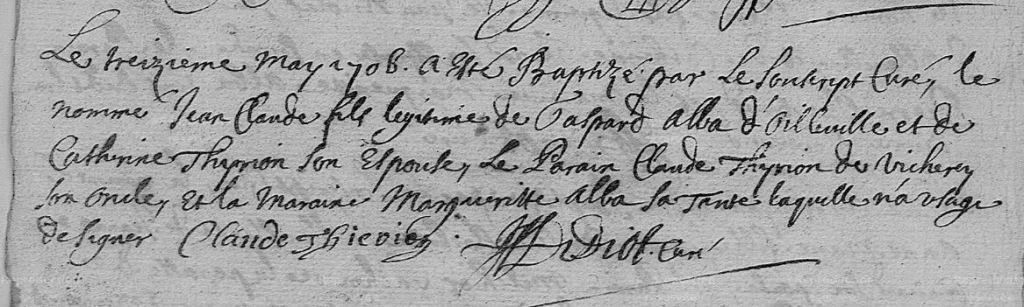 Le treizieme May 1706. a esté Baptizé par Le Souscript Curé, le
nommé Jean Claude fils legitime de Gaspard Alba d'oilleville et de
Catherine Thyrion son Espouse, Le Parain Claude Thyrion de Vicherey
son oncle, Et la Maraine Margueritte Alba sa Tante laquelle n'a usage
de signer Claude Thierion Diot. Curé